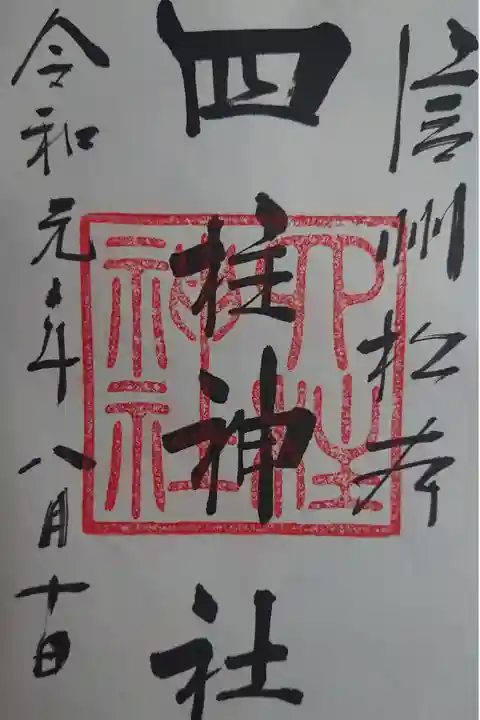 信州松本
四柱神社
令和元年八月十日
四柱
神社